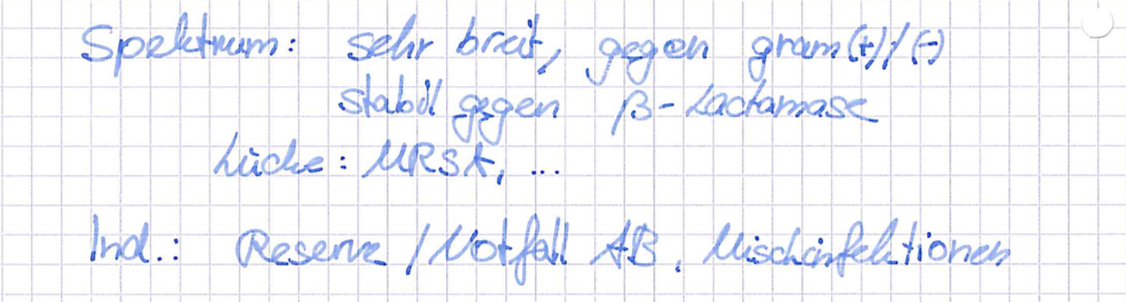 Spektrum: sehr breit, gegen gram(+)/(-)
stabil gegen β-Lactamase
Lücke: MRSA, ...
Ind.: Reserve / Notfall AB, Mischinfektionen